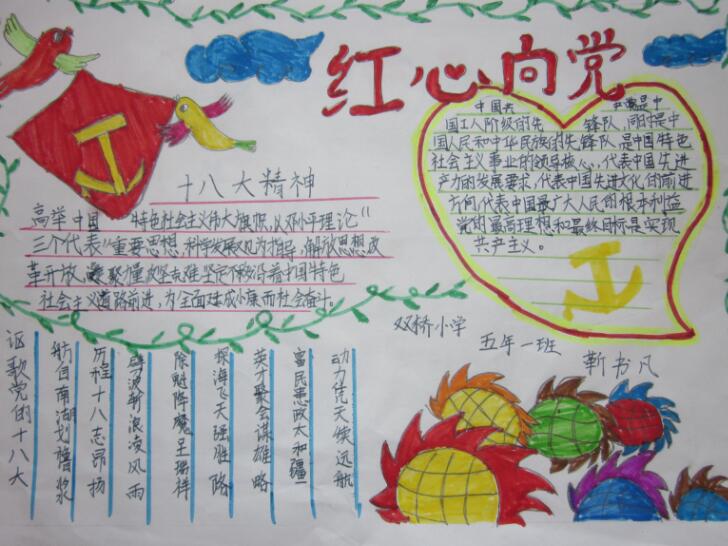 红心向党
中国共 产党是中
国工人阶级的先 锋队,同时是中
国人民和中华民族的先锋队,是中国特色
社会主义事业的领导核心,代表中国先进
产力的发展要求,代表中国先进文化的前进
方向,代表中国最广大人民的根本利益
党的最高理想和最终目标是实现
共产主义。
十八大精神
高举中国 特色社会主义伟大旗帜,以邓小平理论"
三个代表"重要思想,科学发展观为指导,解放思想改
革开放,凝聚 攻坚克难坚定不移沿着中国特色
社会主义道路前进,为全面建成小康而社会奋斗。
双桥小学
五年一班
靳书凡
讴歌党的十八大
航自南湖划橹浆
历程十八志昂扬
劈波斩浪凌风雨
除魅降魔呈瑞祥
探海飞天强胜略
英才聚会谋雄略
富民惠政太和疆
动力凭天续远航